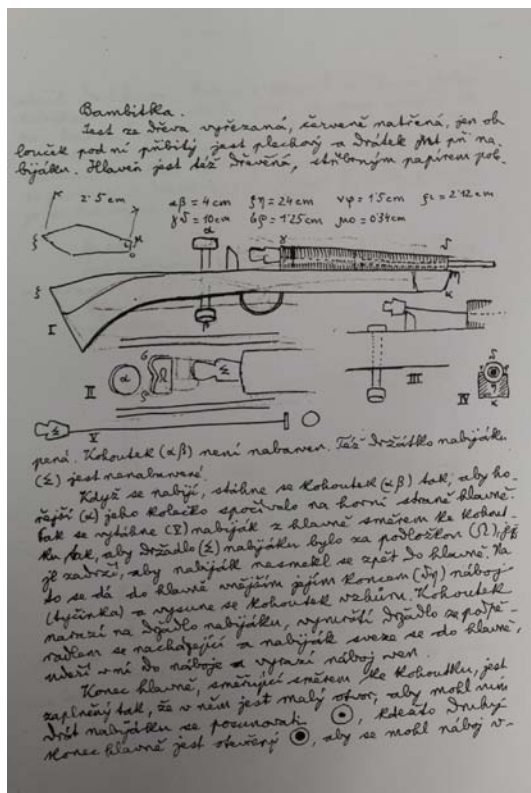 Bambitka.
Jest ze dřeva vyřezaná, červeně natřená, jen ob
louček pod ní přibitý jest plechový a drátek při na
bijáku. Hlaveň jest též dřevěná, stříbrným papírem pol
2·5 cm
αβ = 4 cm ξη = 24 cm νφ = 1·5 cm ρι = 2·12 cm
γδ = 10 cm ϭρ = 1·25 cm μο = 0·34 cm
ξ
μ
ο
α
γ
δ
ξ
η
κ
β
I
II
α
ϭ
Ω
ς
Σ
III
IV
δ
κ
Σ
V
pená. Kohoutek (αβ) není nabarven. Též držátko nabijáku
(Σ) jest nenabarvené.
Když se nabíjí, stáhne se kohoutek (αβ) tak, aby ho-
řejší (α) jeho kolečko spočívalo na horní straně hlavně.
Pak se vytáhne (V) nabiják z hlavně směrem ke kohout-
ku tak, aby držadlo (Σ) nabijáku bylo za podložkou (Ω), jež
je zadrží, aby nabiják nesmekl se zpět do hlavně. Na
to se dá do hlavně vnějším jejím koncem (δη) náboj
(tyčinka) a vysune se kohoutek vzhůru. Kohoutek
narazí na držadlo nabijáku, vymrští držadlo za podpě-
radlem se nacházející a nabiják sveze se do hlavně,
udeří v ní do náboje a vyrazí náboj ven.
Konec hlavně, směřující směrem ke kohoutku, jest
zaplněný tak, že v něm jest malý otvor, aby mohl ním
drát nabijáku se posunovati, kdežto druhý
konec hlavně jest otevřený, aby se mohl náboj v-